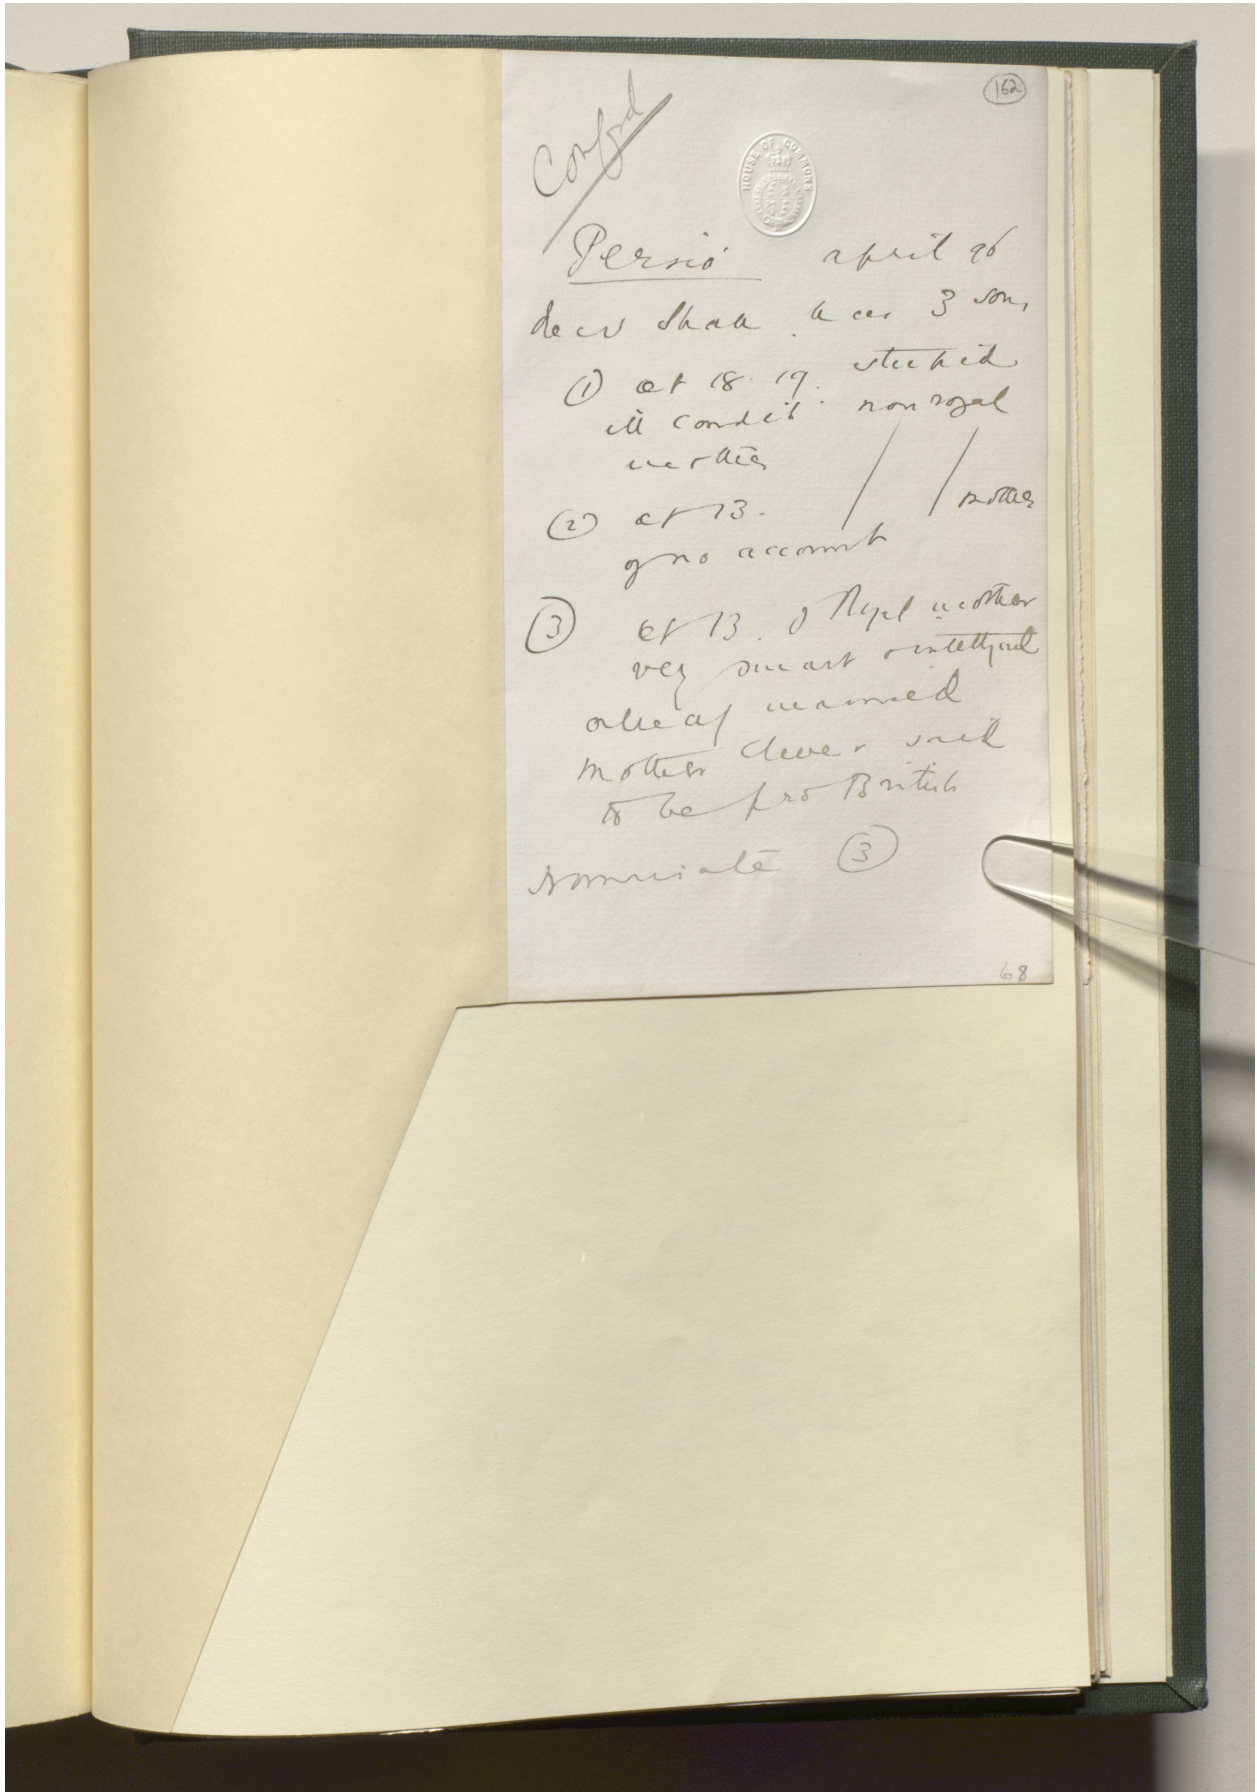 162
Confid
HOUSE OF COMMONS
Persia April 96
New Shah has 3 sons
(1) aet 18. 19. stupid
ill condit. non royal
mother
(2) aet 13. / / mother
of no account
(3) aet 13. of Royal mother
very smart & intelligent
already married
mother clever & said
to be pro British
nominate (3)
68